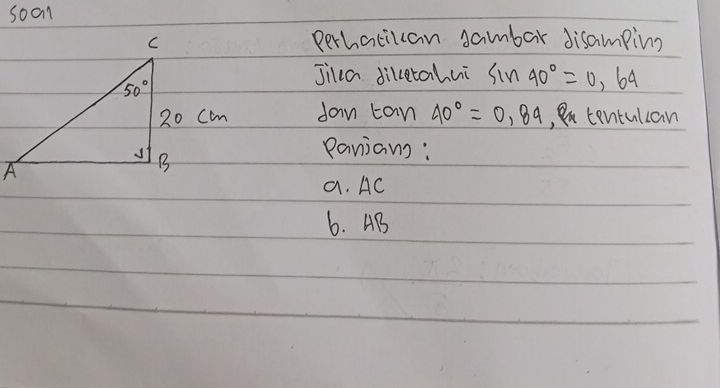 soal
C
50°
20 cm
A
B
Perhatikan gambar disamping
Jika diketahui sin 40° = 0,64
dan tan 40° = 0,84, tentukan
Panjang :
a. AC
b. AB